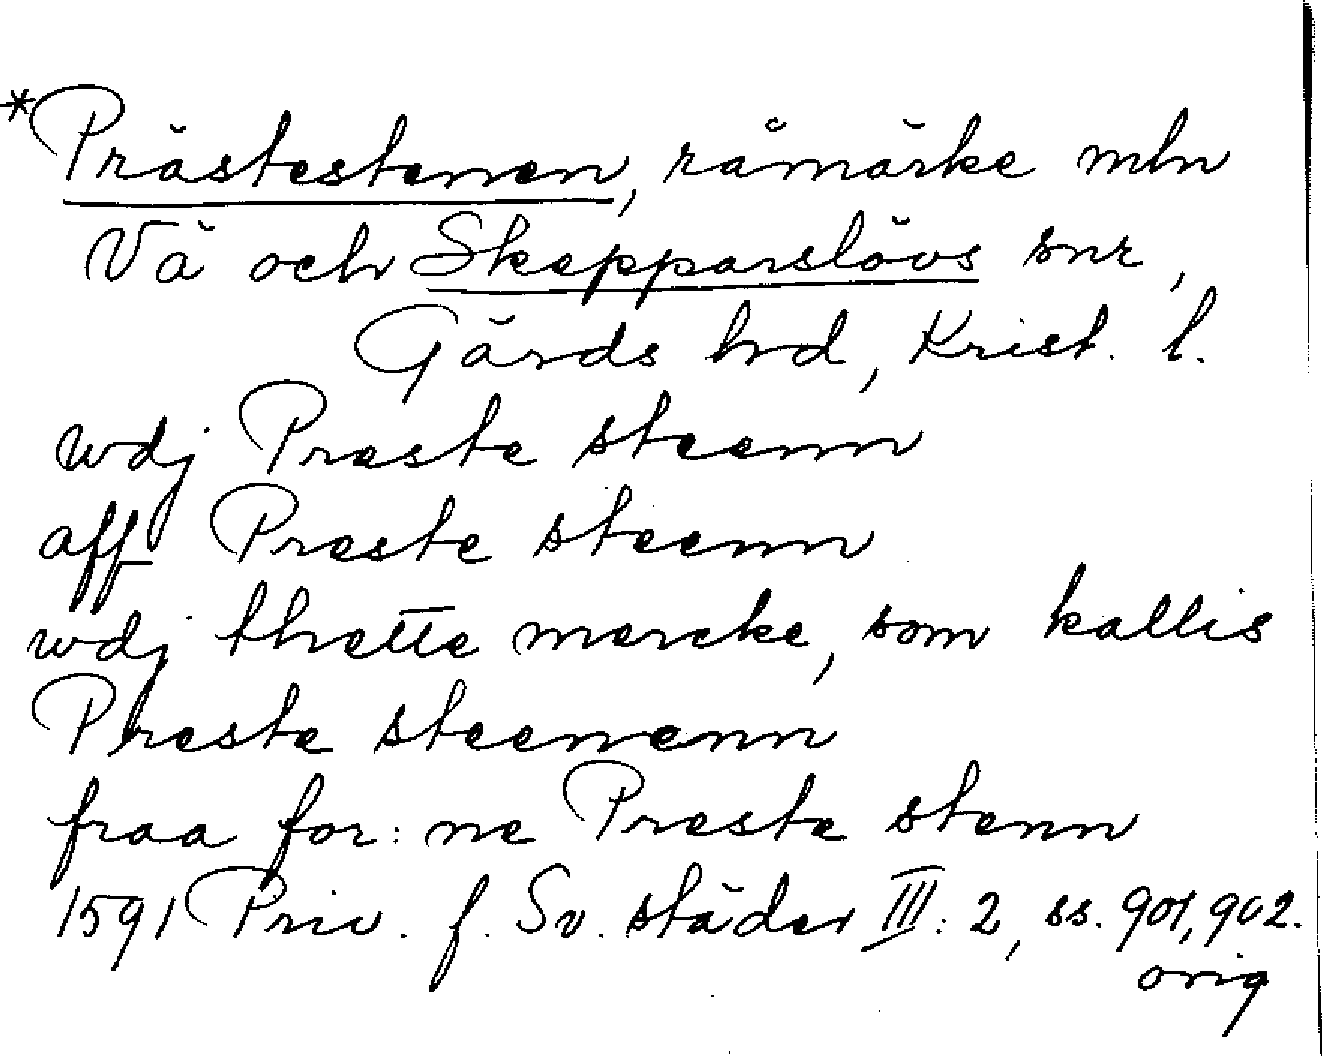 *Prästestenen, råmärke mln
Vä och Skepparslövs snr,
Gärds hrd, Krist. l.
wdj Preste steenn
aff Preste steenn
wdj thrette mercke, som kallis
Preste steenenn
fraa for: ne Preste stenn
1591 Priv. f. Sv. städer III: 2, ss. 901, 902.
orig